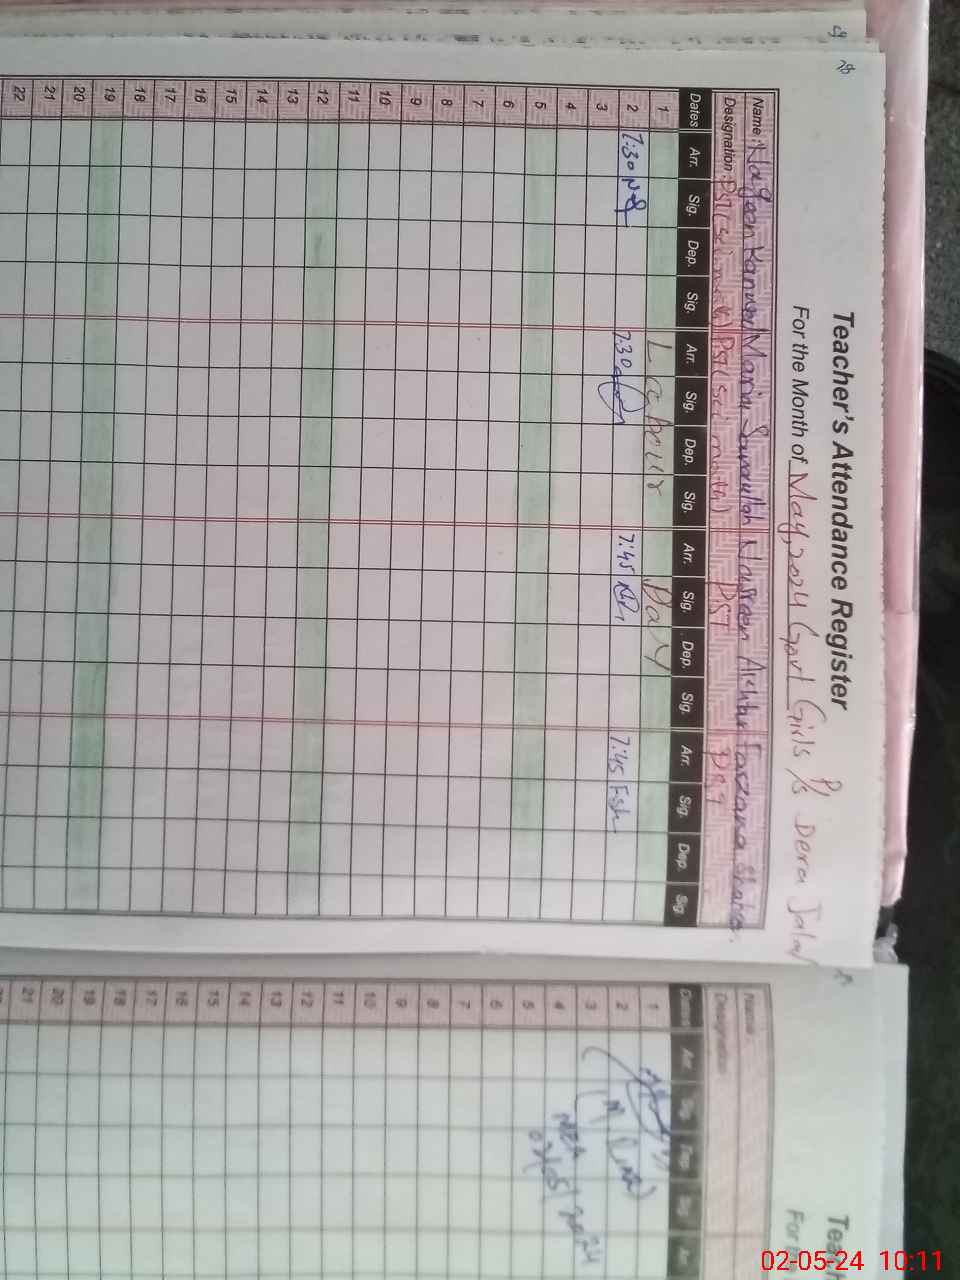 Teacher's Attendance Register
For the Month of May, 2024 Govt Girls P/s Dera Jalal
Name: Nageen Kanwal Maria Samiullah Nasreen Akhtar Farzana Shaheen
Designation: PST (sci math) PST (sci math) PST PST
Dates Arr. Sig. Dep. Sig. Arr. Sig. Dep. Sig. Arr. Sig. Dep. Sig. Arr. Sig. Dep. Sig.
1 Labour Day
2 7:30 7:30 7:45 7:45
3
4
5
6
7
8
9
10
11
12
13
14
15
16
17
18
19
20
21
22
Name:
Designation
Dates Arr. Sig. Dep. Sig. Arr.
1
2
3
4
5 02/05/2024
6
7
8
9
10
11
12
13
14
15
16
17
18
19
20
21
02-05-24 10:11